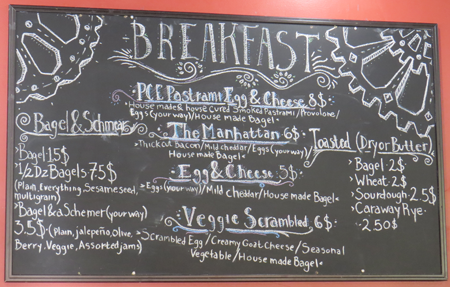 BREAKFAST
PCE Pastrami Egg & Cheese 8$
House made & house cured Smoked Pastrami / Provolone /
Eggs (your way) / House made Bagel
The Manhattan 6$
Thickcut bacon / Mild cheddar / Eggs (your way) /
House made Bagel
Egg & Cheese 5$
Eggs (your way) / Mild cheddar / House made Bagel
Veggie Scrambled 6$
Scrambled Egg / Creamy Goat Cheese / Seasonal
Vegetable / House made Bagel
Bagel & Schmear
Bagel 1.5$
1/2 Dz Bagels 7.5$
(Plain, Everything, Sesame seed,
multigrain)
Bagel & a Schemer (your way)
3.5$ (Plain, jalepeño, Olive,
Berry, Veggie, Assorted jams)
Toasted (Dry or Butter)
Bagel 2$
Wheat 2$
Sourdough 2.5$
Caraway Rye
2.50$